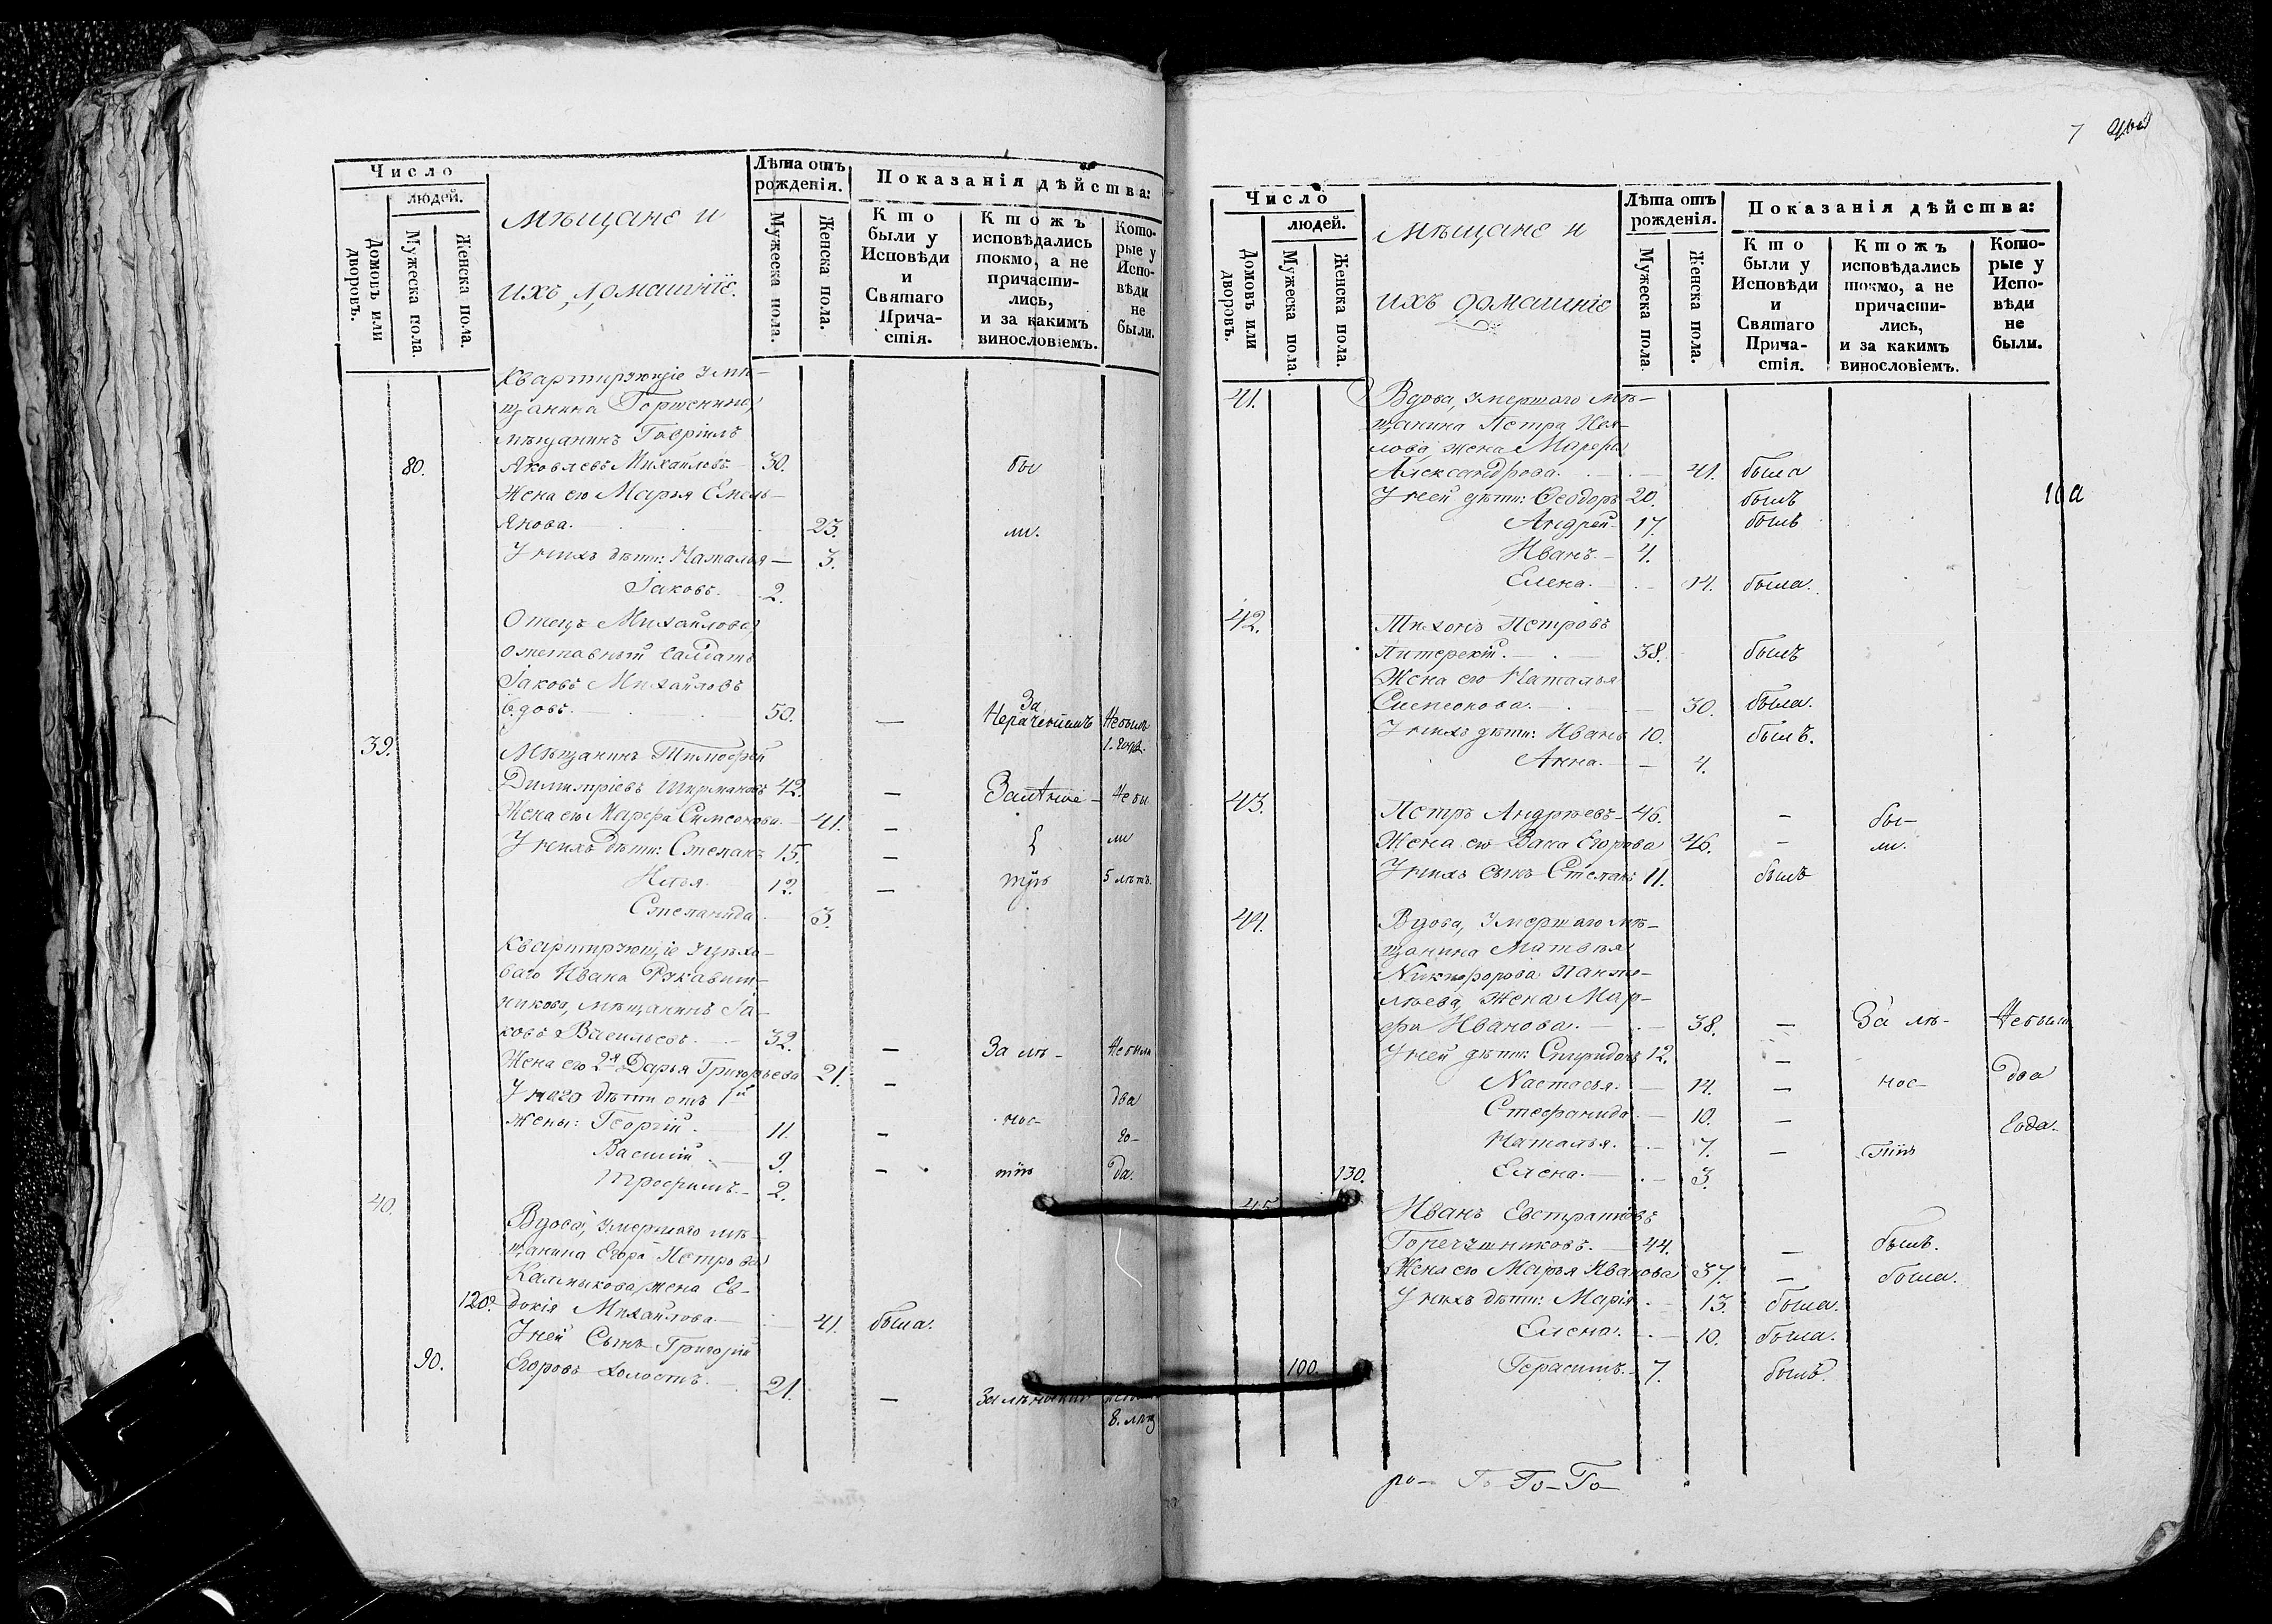 Число
людей.
Домовъ или дворовъ.
Мужеска пола.
Женска пола.
Мѣщане и
ихъ домашніе.
Лѣта отъ рожденія.
Мужеска пола.
Женска пола.
Показанія дѣйства:
Кто были у Исповѣди и Святаго Причастія.
Ктожъ исповѣдались токмо, а не причастились, и за какимъ винословіемъ.
Которые у Исповѣди не были.
Квартирующіе у мѣ-
щанина Горшенина,
мѣщанинъ Гавріилъ
80. Яковлевъ Михайловъ 30. бы
Жена его Марья Емель-
янова. 23. ли.
У нихъ дѣти: Наталья 3.
Іаковъ. 2.
Отецъ Михайлова,
отставный салдатъ
Іаковъ Михайловъ
вдовъ. 50. — За нераченіемъ Небылъ
1. годъ.
39. Мѣщанинъ Тимофей
Димитріевъ 42. — Залѣно- Небы
Жена его Марфа Симеонова. 41. — ли
У нихъ дѣти: Степанъ 15. —
Илья. 12. — тію 5 лѣтъ.
Степанида 3.
Квартирующіе у цѣхо-
ваго Ивана Рукавиш-
никова, мѣщанинъ Іа-
ковъ Васильевъ. 32. — За лѣ- Небыли
Жена его 2я Дарья Григорьева 21. —
У него дѣти отъ 1й два
жены: Георгій. 11. — нос- го-
Василій. 9. — тію да.
Трофимъ. 2.
40. Вдова, умершаго мѣ-
щанина Егора Петрова
Калмыкова, жена Ев-
120. докія Михайлова. 41. была.
У ней Сынъ Григорій
90. Егоровъ холостъ. 21. —
8. лѣтъ
7
Число
людей.
Домовъ или дворовъ.
Мужеска пола.
Женска пола.
Мѣщане и
ихъ домашніе
Лѣта отъ рожденія.
Мужеска пола
Женска пола.
Показанія дѣйства:
Кто были у Исповѣди и Святаго Причастія.
Ктожъ исповѣдались токмо, а не причастились, и за какимъ винословіемъ.
Которые у Исповѣди не были.
41. Вдова, умершаго мѣ-
щанина Петра
жена Марфа
Александрова. 41. была
У ней дѣти: Ѳеодоръ 20. былъ
Андрей 17. былъ
Иванъ. 4.
Елена. 14. была.
42. Тихонъ Петровъ
Питерскій. 38. былъ
Жена его Наталья
Симеонова. 30. была.
У нихъ дѣти: Иванъ 10. былъ.
Анна. 4.
43. Петръ Андреевъ 46. — бы-
Жена его Васа Егорова 46. — ли.
У нихъ сынъ Степанъ 11. былъ
44. Вдова, умершаго мѣ-
щанина Матвѣя
Никифорова Панте-
лѣева, жена Мар-
фа Иванова. 38. — За лѣ- Небыли
У ней дѣти: Спиридонъ 12. —
Настасья. 14. — нос- два
Стефанида 10. — года.
Наталья. 7. — тію
130. Елена. 3.
45. Иванъ Евстратовъ
44. — былъ.
Жена его Марья Иванова 37. — была.
У нихъ дѣти: Марія 13. была.
Елена. 10. была.
100. Герасимъ. 7. былъ.
ро- Го- Го- Го-